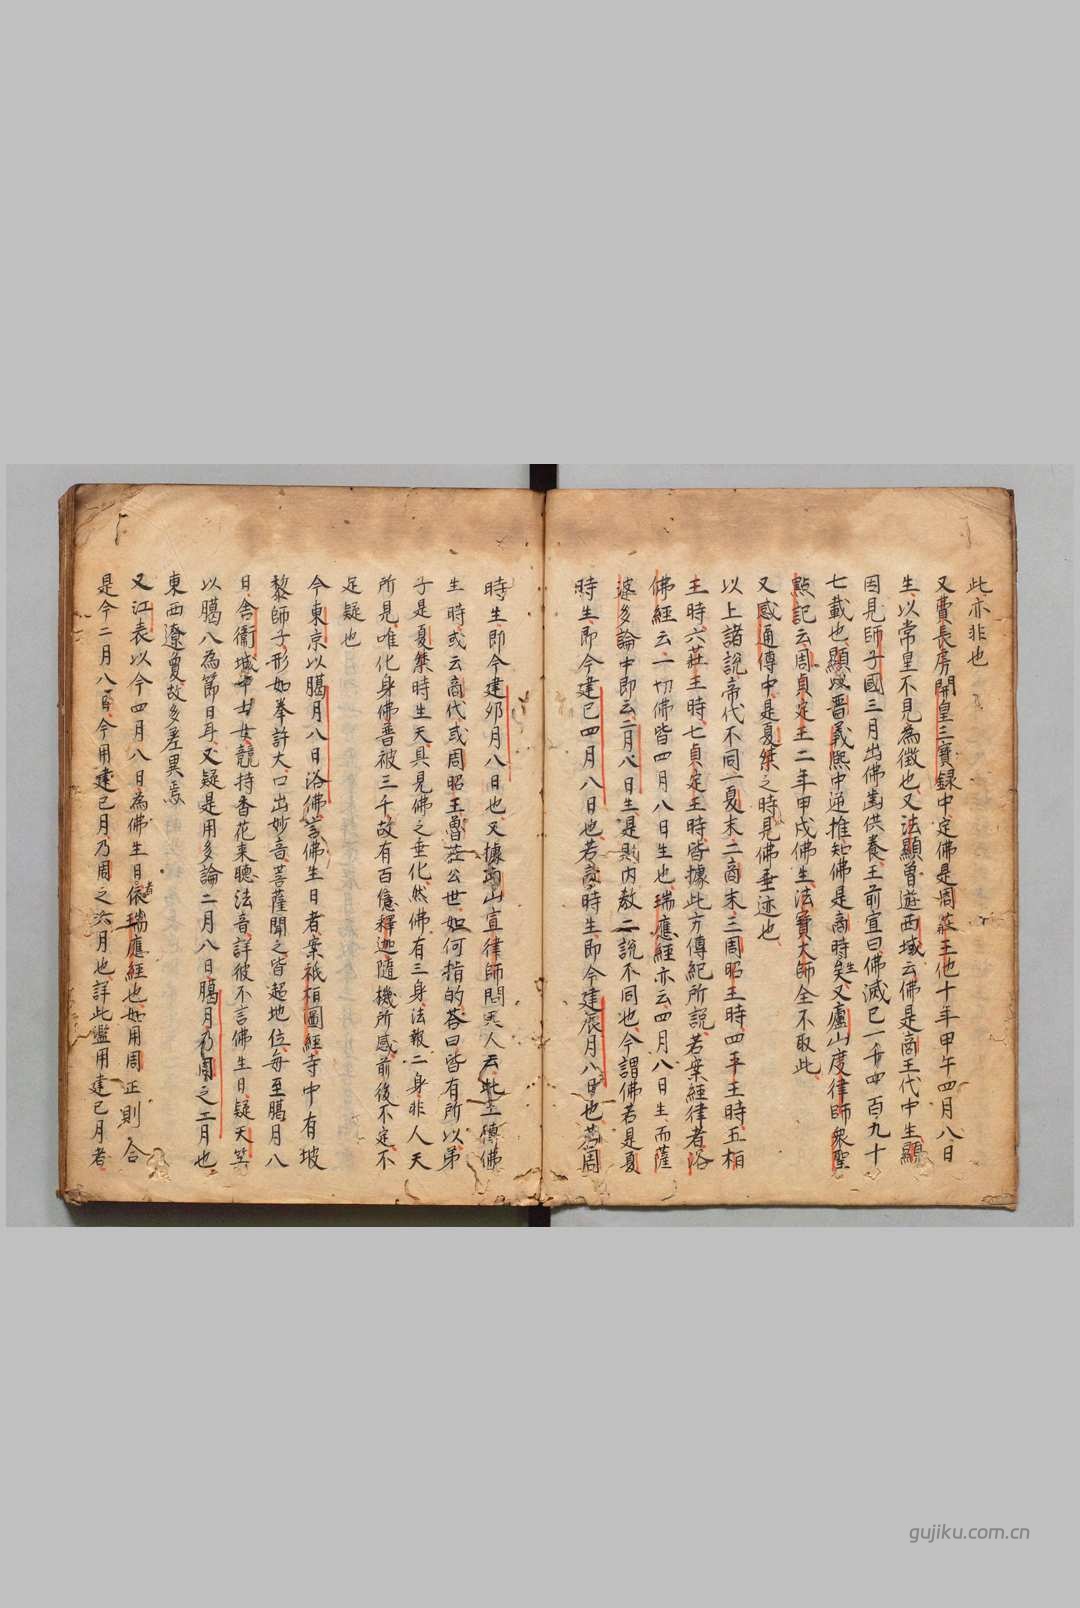 此亦非也
又費長房開皇三寶録中定佛是周莊王他十年甲午四月八日
生以常星不見為徵也又法顯曽遊西域云佛是商王代中生顯
因見師子國三月出佛齒供養王前宣曰佛滅已一千四百九十
七載也顯㷡晋義熈中逆推知佛是商時生矣又廬山度律師衆聖
點記云周貞定王二年甲戌佛生法寶大師全不取此
又感通傳中是夏桀之時見佛垂迹也
以上諸説帝代不同一夏末二商末三周昭王時四平王時五桓
王時六莊王時七貞定王時皆據此方傳紀所説若案經律者洛
佛經云一切佛皆四月八日生也瑞應經亦云四月八日生而薩
婆多論中即云二月八日生是則内教二説不同也今謂佛若是夏
時生即今建巳四月八日也若商時生即今建辰月八日也若周
時生即今建夘月八日也又據南山宣律師問天人云此土傳佛
生時或云商代或周昭王魯莊公世如何指的荅曰皆有所以弟
子是夏桀時生天具見佛之垂化然佛有三身法報二身非人天
所見唯化身佛普被三千故有百億釋迦隨機所感前後不定不
足疑也
今東京以臈月八日浴佛言佛生日者案祇桓圖經寺中有坡
黎師子形如拳許大口出妙音菩薩聞之皆超地位每至臈月八
日舍衞城中士女競持香花来聽法音詳彼不言佛生日疑天竺
以臈八為節日耳又疑是用多論二月八日臈月乃周之二月也
東西遼夐故多差異焉
又江表以今四月八日為佛生日者依瑞應經也如用周正則合
是今二月八日今用建巳月乃周之六月也詳此濫用建巳月者